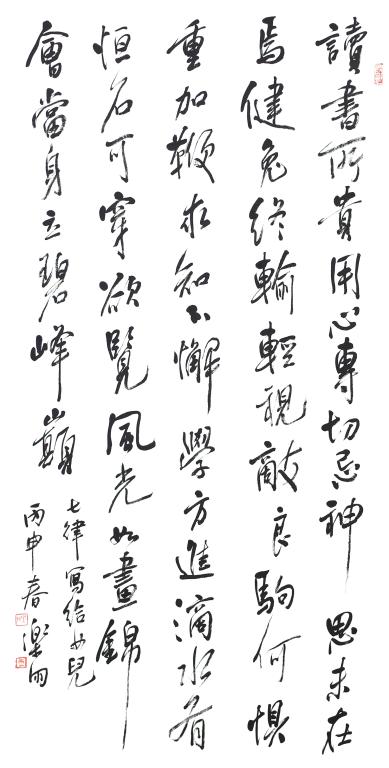 讀書所貴用心專切忌神思未在
焉健兔終輸輕視敵良駒何懼
重加鞭求知不懈學方進滴水有
恒石可穿欲覽風光如畫錦
會當身立碧峰巔
七律寫給女兒
丙申春